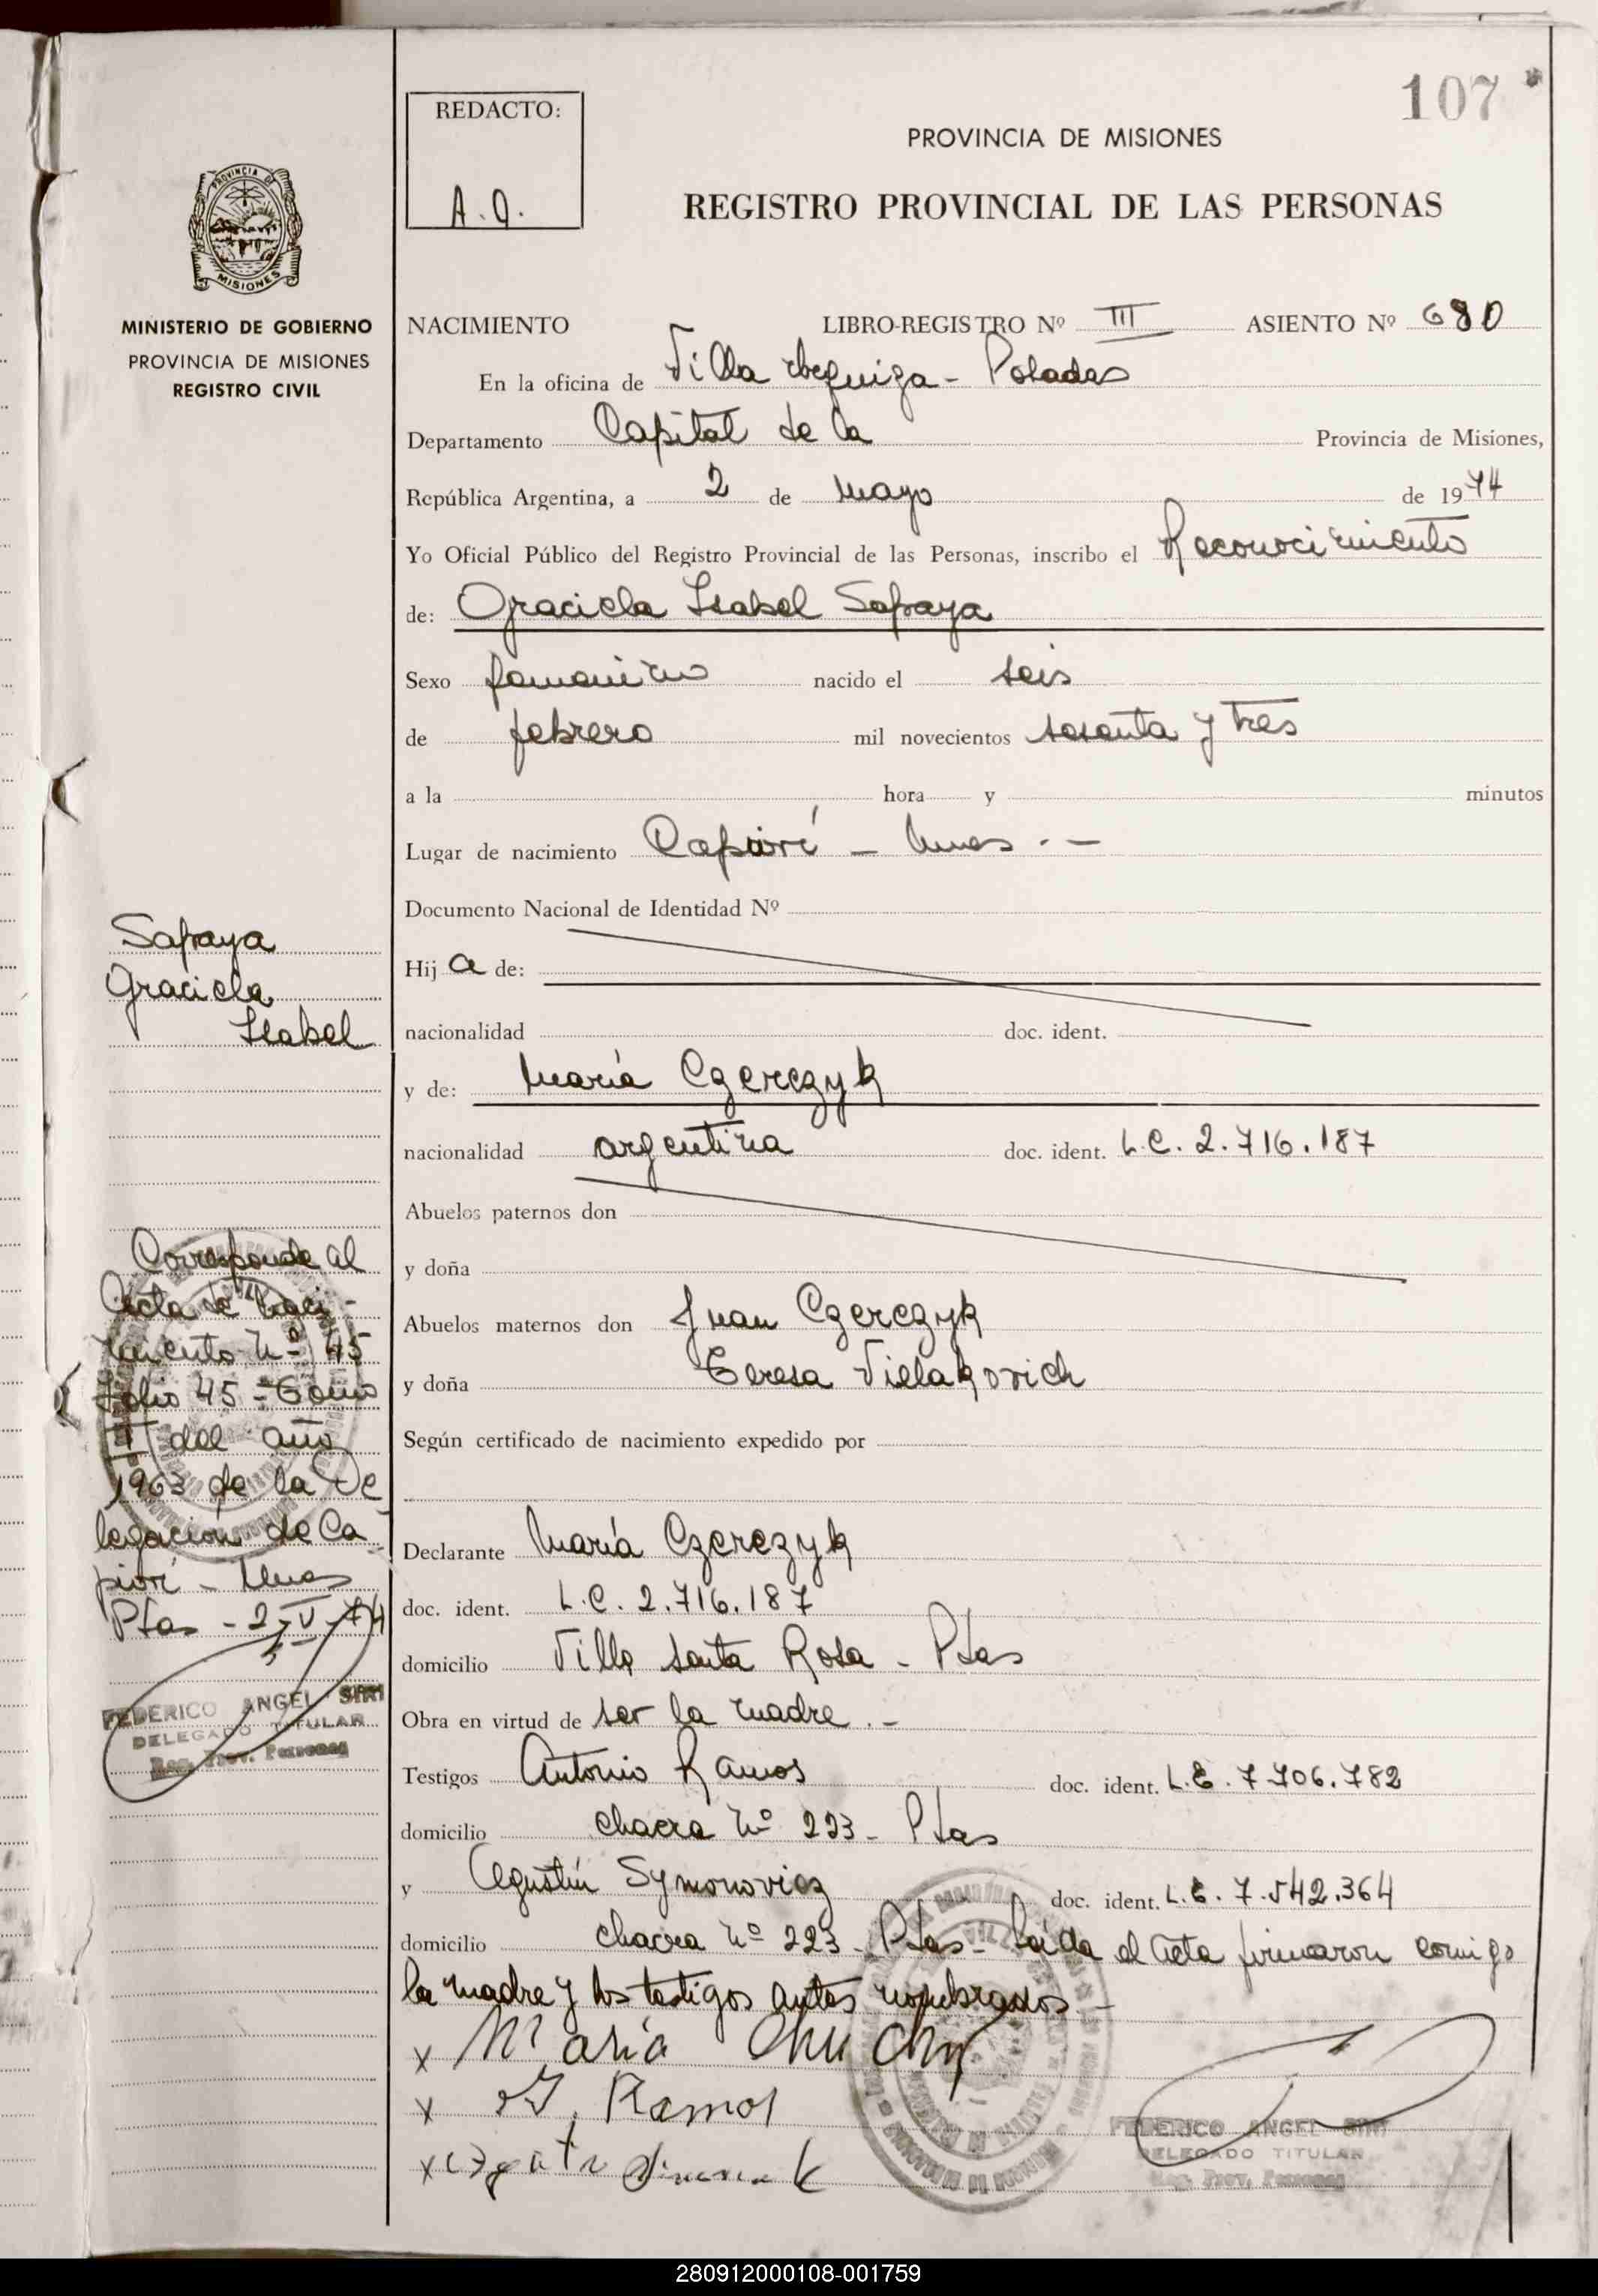 107
REDACTO:
A.Q.
PROVINCIA DE MISIONES
REGISTRO PROVINCIAL DE LAS PERSONAS
PROVINCIA DE
MISIONES
MINISTERIO DE GOBIERNO
PROVINCIA DE MISIONES
REGISTRO CIVIL
NACIMIENTO LIBRO-REGISTRO Nº III ASIENTO Nº 680
En la oficina de Villa Urquiza - Posadas
Departamento Capital de la Provincia de Misiones,
República Argentina, a 2 de Mayo de 1974
Yo Oficial Público del Registro Provincial de las Personas, inscribo el Reconocimiento
de: Graciela Isabel Sapaya
Sexo femenino nacido el seis
de febrero mil novecientos sesenta y tres
a la hora y minutos
Lugar de nacimiento Capiovi - Mnes . -
Documento Nacional de Identidad Nº
Hij a de:
nacionalidad doc. ident.
y de: María Czerczyk
nacionalidad argentina doc. ident. L.C. 2.716.187
Abuelos paternos don
y doña
Abuelos maternos don Juan Czerczyk
y doña Teresa Vielakovich
Según certificado de nacimiento expedido por
Declarante María Czerczyk
doc. ident. L.C. 2.716.187
domicilio Villa Santa Rosa - Pdas
Obra en virtud de ser la madre . -
Testigos Antonio Ramos doc. ident. L.E. 7.706.782
domicilio chacra Nº 223 - Pdas
y Agustín Symonovicz doc. ident. L.E. 7.542.364
domicilio chacra Nº 223 - Pdas - Leída el Acta firmaron comigo
la madre y los testigos antes nombrados -
x María
x Ramos
x
FEDERICO ANGEL SIRI
DELEGADO TITULAR
Reg. Prov. Personas
Sapaya
Graciela
Isabel
Corresponde al
Acta de Naci-
miento Nº 45
Folio 45 - Tomo
I del año
1963 de la De
legación de Ca-
piovi - Mnes
Pdas - 2-V-74
FEDERICO ANGEL SIRI
DELEGADO TITULAR
Reg. Prov. Personas
280912000108-001759